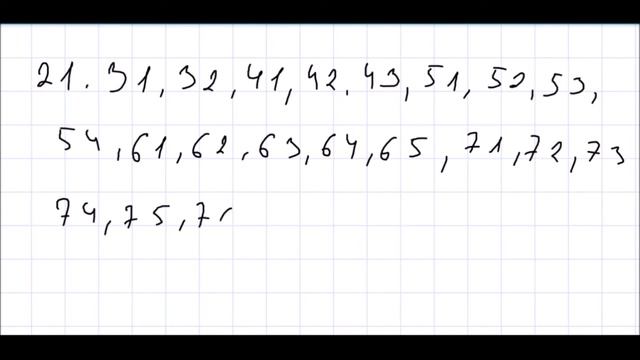 21. 31, 32, 41, 42. 43, 51, 52, 53,
54, 61, 62, 63, 64, 65, 71, 72, 73
74, 75, 7